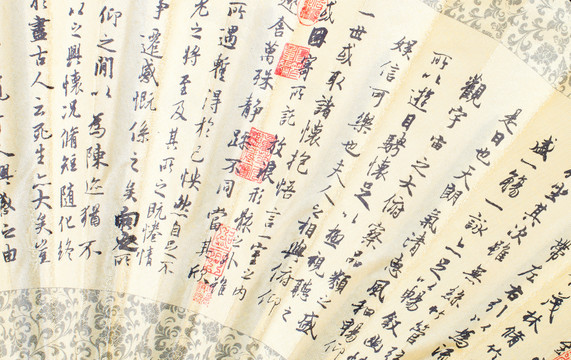 茂林脩
帶左右引以
坐其次雖無絲竹管
盛一觴一詠亦足以暢
是日也天朗氣清惠風和暢仰
觀宇宙之大俯察品類之盛
所以遊目騁懷足以極視聽之
娛信可樂也夫人之相與俯仰
一世或取諸懷抱悟言一室之內
或因寄所託放浪形骸之外雖
舍萬殊靜躁不同當其欣
所遇暫得於己快然自足不
老之將至及其所之既惓情
事遷感慨係之矣向之所
仰之閒以為陳迹猶不
以之興懷況脩短隨化終
於盡古人云死生亦大矣豈
人興感之由